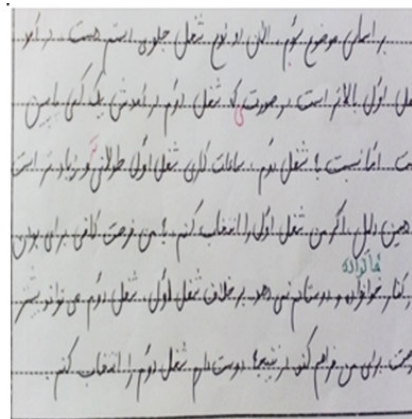 بر اساس موضوع سوم، الان دو نوع شغل جلوی اسم هست. درآمد
اوّل بالاتر است درصورتی که شغل دوّم درآمدش یک کمی پایین
امّا نسبت با شغل دوّم، ساعات کاری شغل اوّل طولانی و زیادتر است
همین دلیل، اگر من شغل اوّل را انتخاب کنم، با من فرصت کافی برای بودن
خانواده
کنار خوانواده و دوستانم نمی دهد. بر خلاف شغل اوّل، شغل دوّم می تواند بیشتر
برای من فراهم کند. در نتیجه، دوست دارم شغل دوّم را انتخاب کنم.